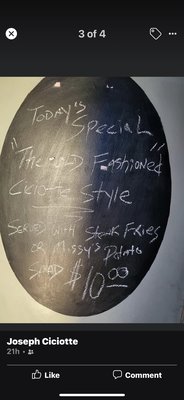 3 of 4
TODAY'S
SPECIAL
"The OLD Fashioned"
Ciciotte Style
SERVED WITH Steak FRIES
OR Missy's Potato
SALAD $10.00
Joseph Ciciotte
21h
Like Comment